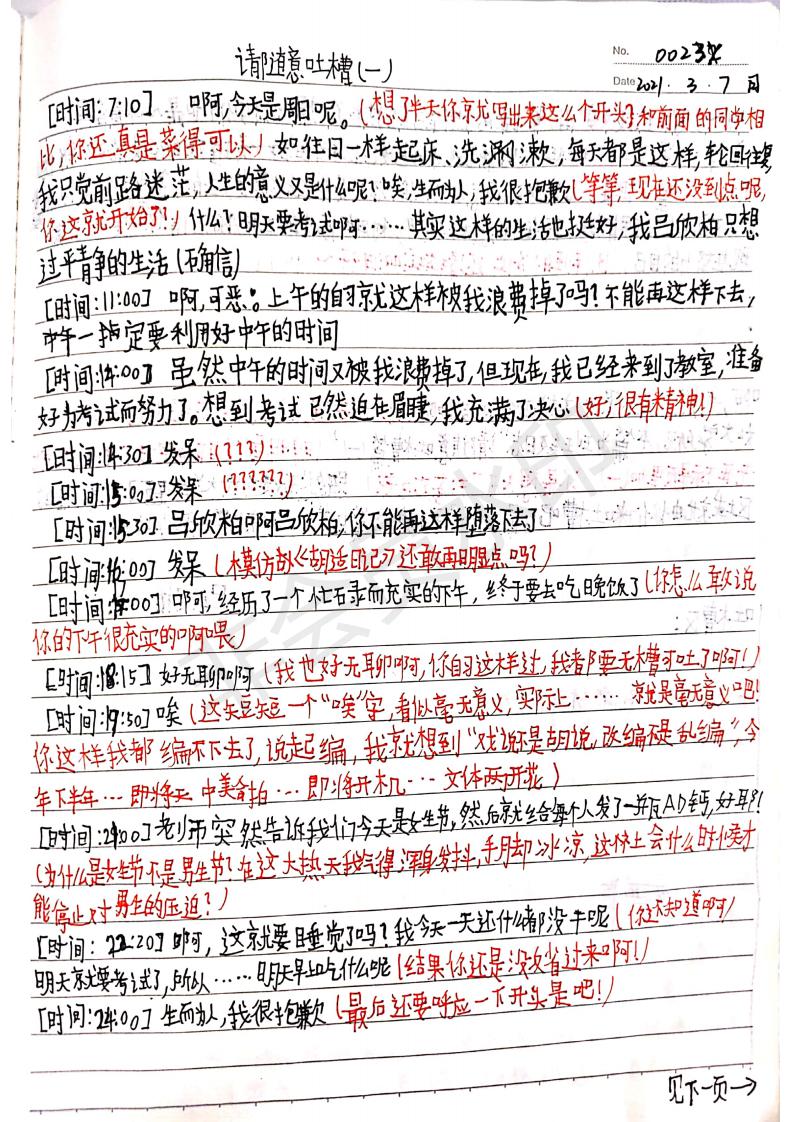 请郡随意吐槽(一)
No. 0023
Date 2021.3.7 日
[时间:7:10] 啊,今天是周日呢。(想了半天你就写出来这么个开头)和前面的同学相
比,你还真是菜得可以) 如往日一样起床、洗涮漱,每天都是这样,轮回往复
我只觉前路迷茫,人生的意义又是什么呢?唉,生而为人,我很抱歉(等等,现在还没到点呢,
你这就开始了?) 什么?明天要考试啊……其实这样的生活也挺好,我吕欣柏只想
过平静的生活(确信)
[时间:11:00] 啊,可恶。上午的自习就这样被我浪费掉了吗?不能再这样下去,
中午一定要利用好中午的时间
[时间:14:00] 虽然中午的时间又被我浪费掉了,但现在,我已经来到了教室,准备
好为考试而努力了。想到考试已然迫在眉睫,我充满了决心(好,很有精神!)
[时间:14:30] 发呆 (???)
[时间:15:00] 发呆 (??????)
[时间:15:30] 吕欣柏啊吕欣柏,你不能再这样堕落下去了
[时间:16:00] 发呆 (模仿《胡适日记》还敢再明显点吗?)
[时间:17:00] 啊,经历了一个忙碌而充实的下午,终于要去吃晚饭了(你怎么敢说
你的下午很充实的啊喂)
[时间:18:15] 好无聊啊(我也好无聊啊,你自习这样过,我都要无槽可吐了啊!)
[时间:19:50] 唉 (这短短一个“唉”字,看似毫无意义,实际上……就是毫无意义吧!
你这样我都编不下去了,说起编,我就想到“戏说不是胡说,改编不是乱编”,今
年下半年…即将 中美合拍…即将开机…文体两开花)
[时间:21:00] 老师突然告诉我们今天是女生节,然后就给每个人发了一瓶AD钙,好耶!
(为什么是女生节不是男生节?在这大热天我气得浑身发抖,手脚却冰凉,这世上会什么时候才
能停止对男生的压迫?)
[时间:22:20] 啊,这就要睡觉了吗?我今天一天还什么都没干呢(你还知道啊)
明天就要考试了,所以……明天早上吃什么呢(结果你还是没反省过来啊!)
[时间:24:00] 生而为人,我很抱歉(最后还要呼应一下开头是吧!)
见下一页→